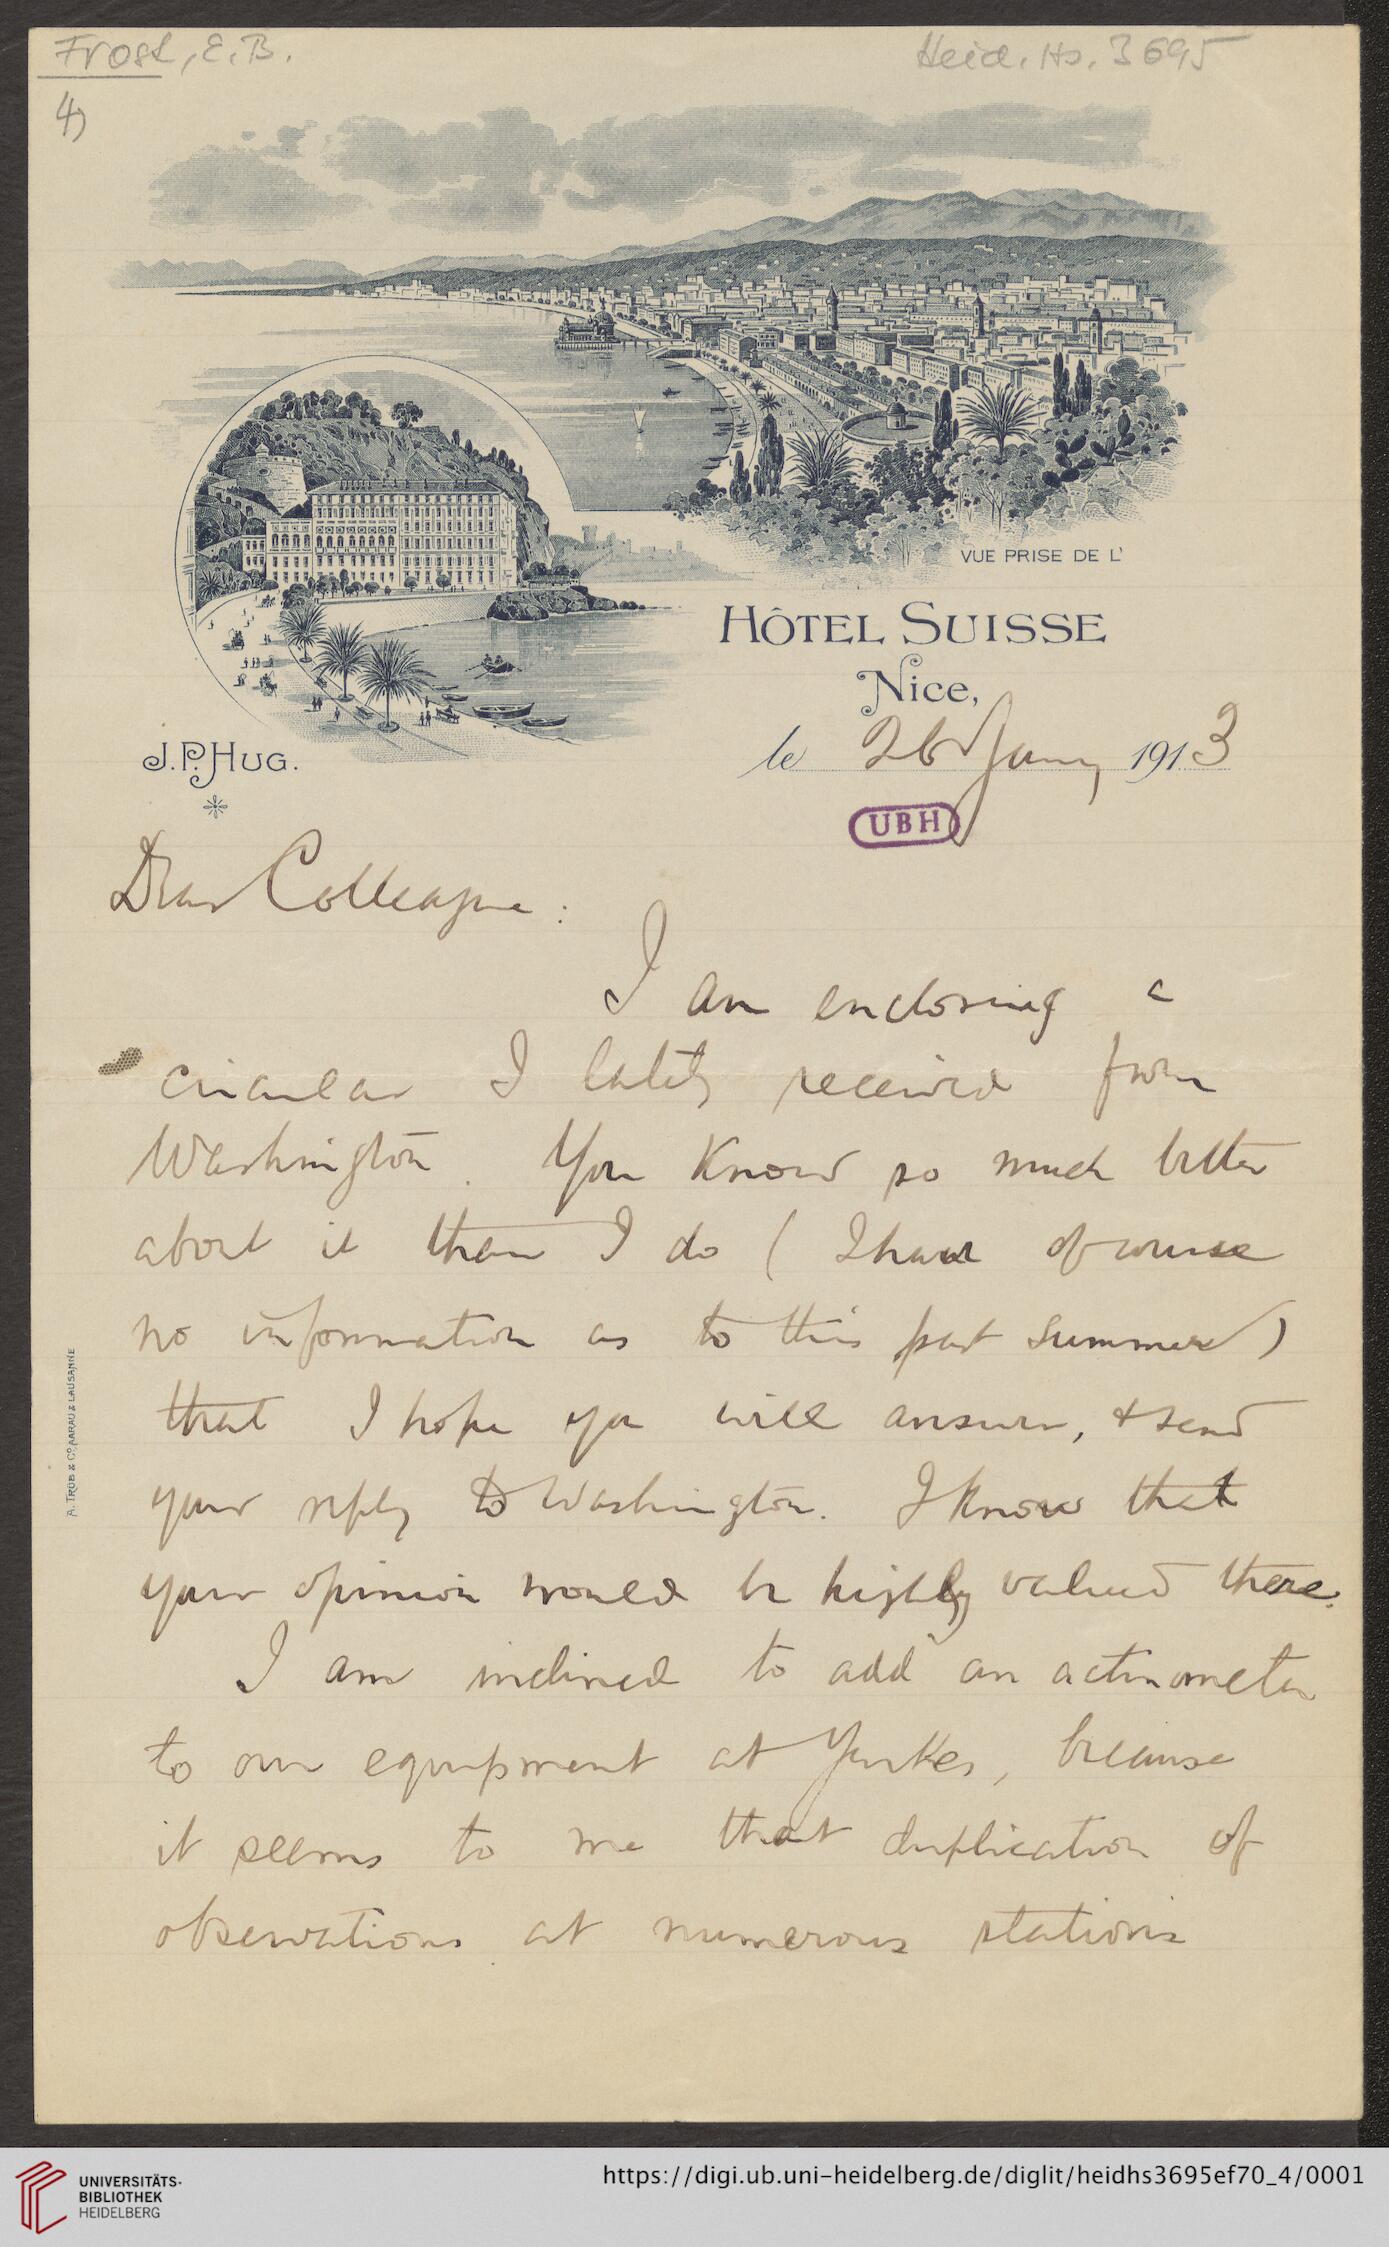 Frost, E. B.
Heid. Hs. 3695
4)
VUE PRISE DE L'
HÔTEL SUISSE
Nice,
J. P. HUG.
le 26 Jany 1913
UBH
Dear Colleague:
I am enclosing a
circular I lately received from
Washington. You know so much better
about it than I do (I have of course
no information as to this past summer)
that I hope you will answer, & send
your reply to Washington. I know that
your opinion would be highly valued there.
I am inclined to add an actinometer
to our equipment at Yerkes, because
it seems to me that duplication of
observations at numerous stations
A. TRÜB & Co. AARAU & LAUSANNE
UNIVERSITÄTS-
BIBLIOTHEK
HEIDELBERG
https://digi.ub.uni-heidelberg.de/diglit/heidhs3695ef70_4/0001